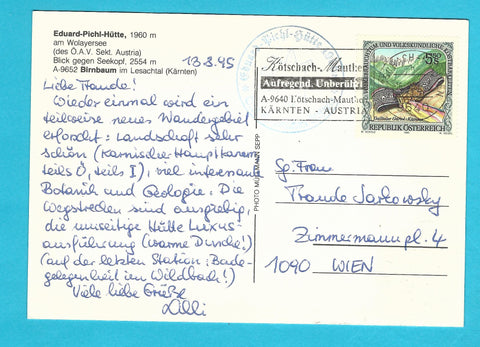 Eduard-Pichl-Hütte, 1960 m
am Wolayersee
(des Ö.A.V. Sekt. Austria)
Blick gegen Seekopf, 2554 m
A-9652 Birnbaum im Lesachtal (Kärnten)
13.8.95
Liebe Traude!
Wieder einmal wird ein
teilweise neues Wandergebiet
erforscht: Landschaft sehr
schön (Karnischer Hauptkamm,
teils Ö, teils I), viel interessante
Botanik und Geologie. Die
Wegstrecken sind ausgiebig,
die Hütte Luxus-
ausführung (warme Dusche!)
(auf der letzten Station: Bade-
gelegenheit im Wildbach!)
Viele liebe Grüße
Lilli
PHOTO SEPP
Eduard-Pichl-Hütte
Kötschach-Mauthen
Aufregend. Unberührt
A-9640 Kötschach-Mauthen
KÄRNTEN - AUSTRIA
VOLKSKUNDLICHE
5 S
REPUBLIK ÖSTERREICH
Sg. Frau
Traude Sarkowsky
Zimmermannpl. 4
1090 WIEN